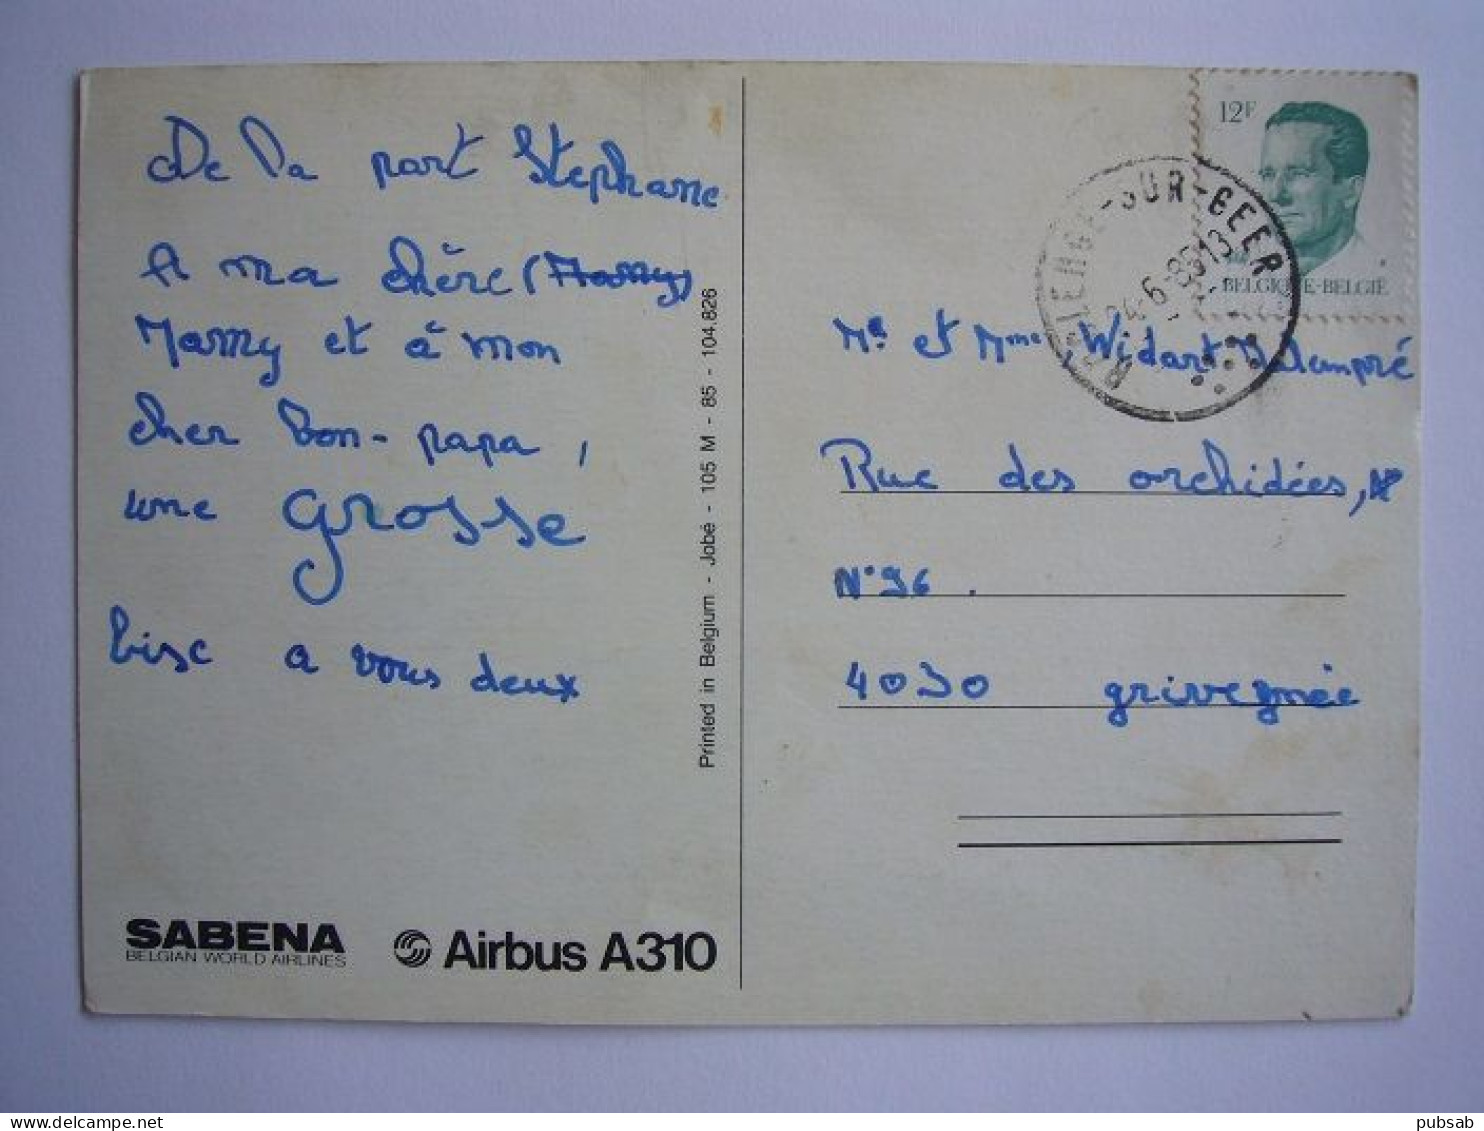 De la part Stephane
A ma chère (Mamy)
Mamy et à mon
cher bon-papa,
une grosse
bise a vous deux
SABENA
BELGIAN WORLD AIRLINES
Airbus A310
Printed in Belgium - Jobé - 105 M - 85 - 104.826
12F
BELGIQUE-BELGIË
-SUR-GEER
Mr et Mme Widart
Rue des orchidées,
N°96.
4030 grivegnée
delcampe.net
pubsab